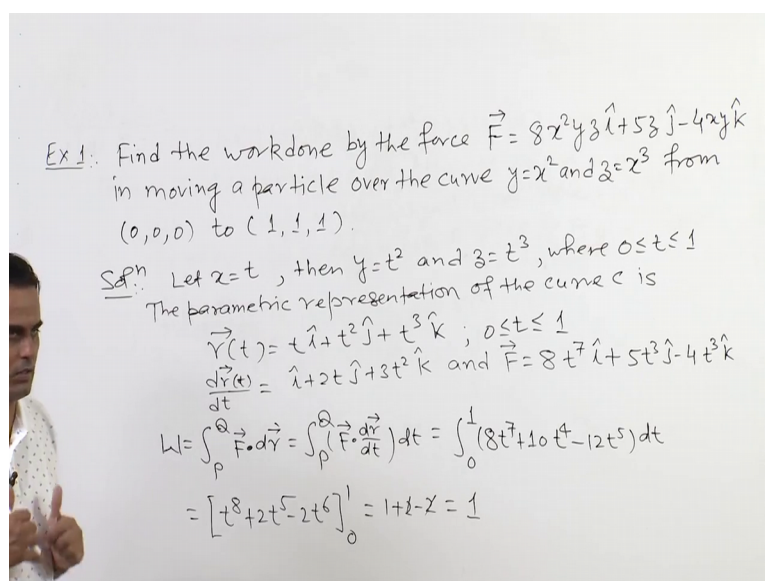 Ex 1:. Find the workdone by the force F⃗ = 8x²yz î+5z ĵ-4xy k̂
in moving a particle over the curve y=x² and z=x³ from
(0,0,0) to (1,1,1).
Solⁿ: Let x=t, then y=t² and z=t³, where 0≤t≤1
The parametric representation of the curve c is
r⃗(t)= t î+t² ĵ+t³ k̂ ; 0≤t≤1
dr⃗(t)/dt = î+2t ĵ+3t² k̂ and F⃗=8t⁷ î+5t³ ĵ-4t³ k̂
W=∫_P^Q F⃗•dr⃗ = ∫_P^Q (F⃗•dr⃗/dt) dt = ∫_0^1 (8t⁷+10t⁴-12t⁵) dt
= [t⁸+2t⁵-2t⁶]_0^1 = 1+2-2 = 1